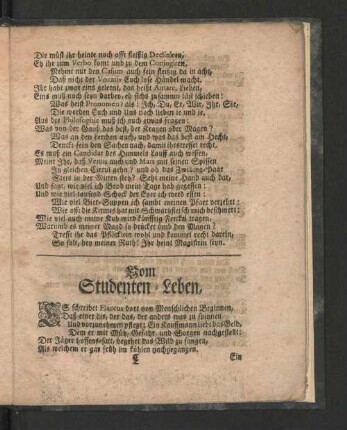 Die müst ihr heinte noch offt fleissig Decliniren,
Eh ihr zum Verbo komt und zu dem Conjugiren,
Nehmt nur den Casum auch fein fleißig da in acht,
Daß nicht der Vocativ Euch lose Händel macht.
Ihr habt zwar eins gelernt, das heißt Amare, lieben,
Eins muß noch seyn darbey, eh sichs zusamm läst schieben:
Was heist Pronomen? als: Ich, Du, Er, Wir, Ihr, Sie,
Die werden Euch und Uns noch lieben ie und ie.
Aus der Philosophie muß ich euch etwas fragen:
Was von der Ganß das best, der Kragen oder Magen?
Was an den Lerchen auch, und was das best am Hecht,
Denckt fein den Sachen nach, damit ihrs treffet recht.
Es muß ein Candidat des Himmels Lauff auch wissen,
Meint Ihr, daß Venus auch und Mars mit seinen Spissen
In gleichen Circul gehn? und ob das Zwillings-Paar
Stets in der Mitten steh? Seht meine Hand auch dar,
Und sagt, wie viel ich Brod mein Tage hab gegessen:
Und wie viel tausend Schock der Eyer ich werd essen:
Wie viel Bier-Suppen ich sambt meinen Pfarr verzehrt:
Wie offt die Kirmeß hat mit Schwartzfleisch mich beschwert:
Wie viel auch meine Kuh wird künfftig Ferckel tragen:
Warumb es meiner Magd so drucket umb den Magen?
Trefft ihr das Pflöcklein wohl und kunnet recht darein,
So solt, bey meiner Ruth! Ihr heint Magistrin seyn.
Vom
Studenten Leben,
ES schreibet Flaccus dort vom Menschlichen Beginnen,
Daß einer diß, der das, der anders was zu sinnen
Und vorzunehmen pflegt: Ein Kauffmann liebt das Geld,
Dem er mit Müh, Gefahr, und Sorgen nachgestellt:
Der Jäger hoffens-satt, begehrt das Wild zu fangen,
Als welchem er gar früh im kühlen nachgegangen.
C Ein